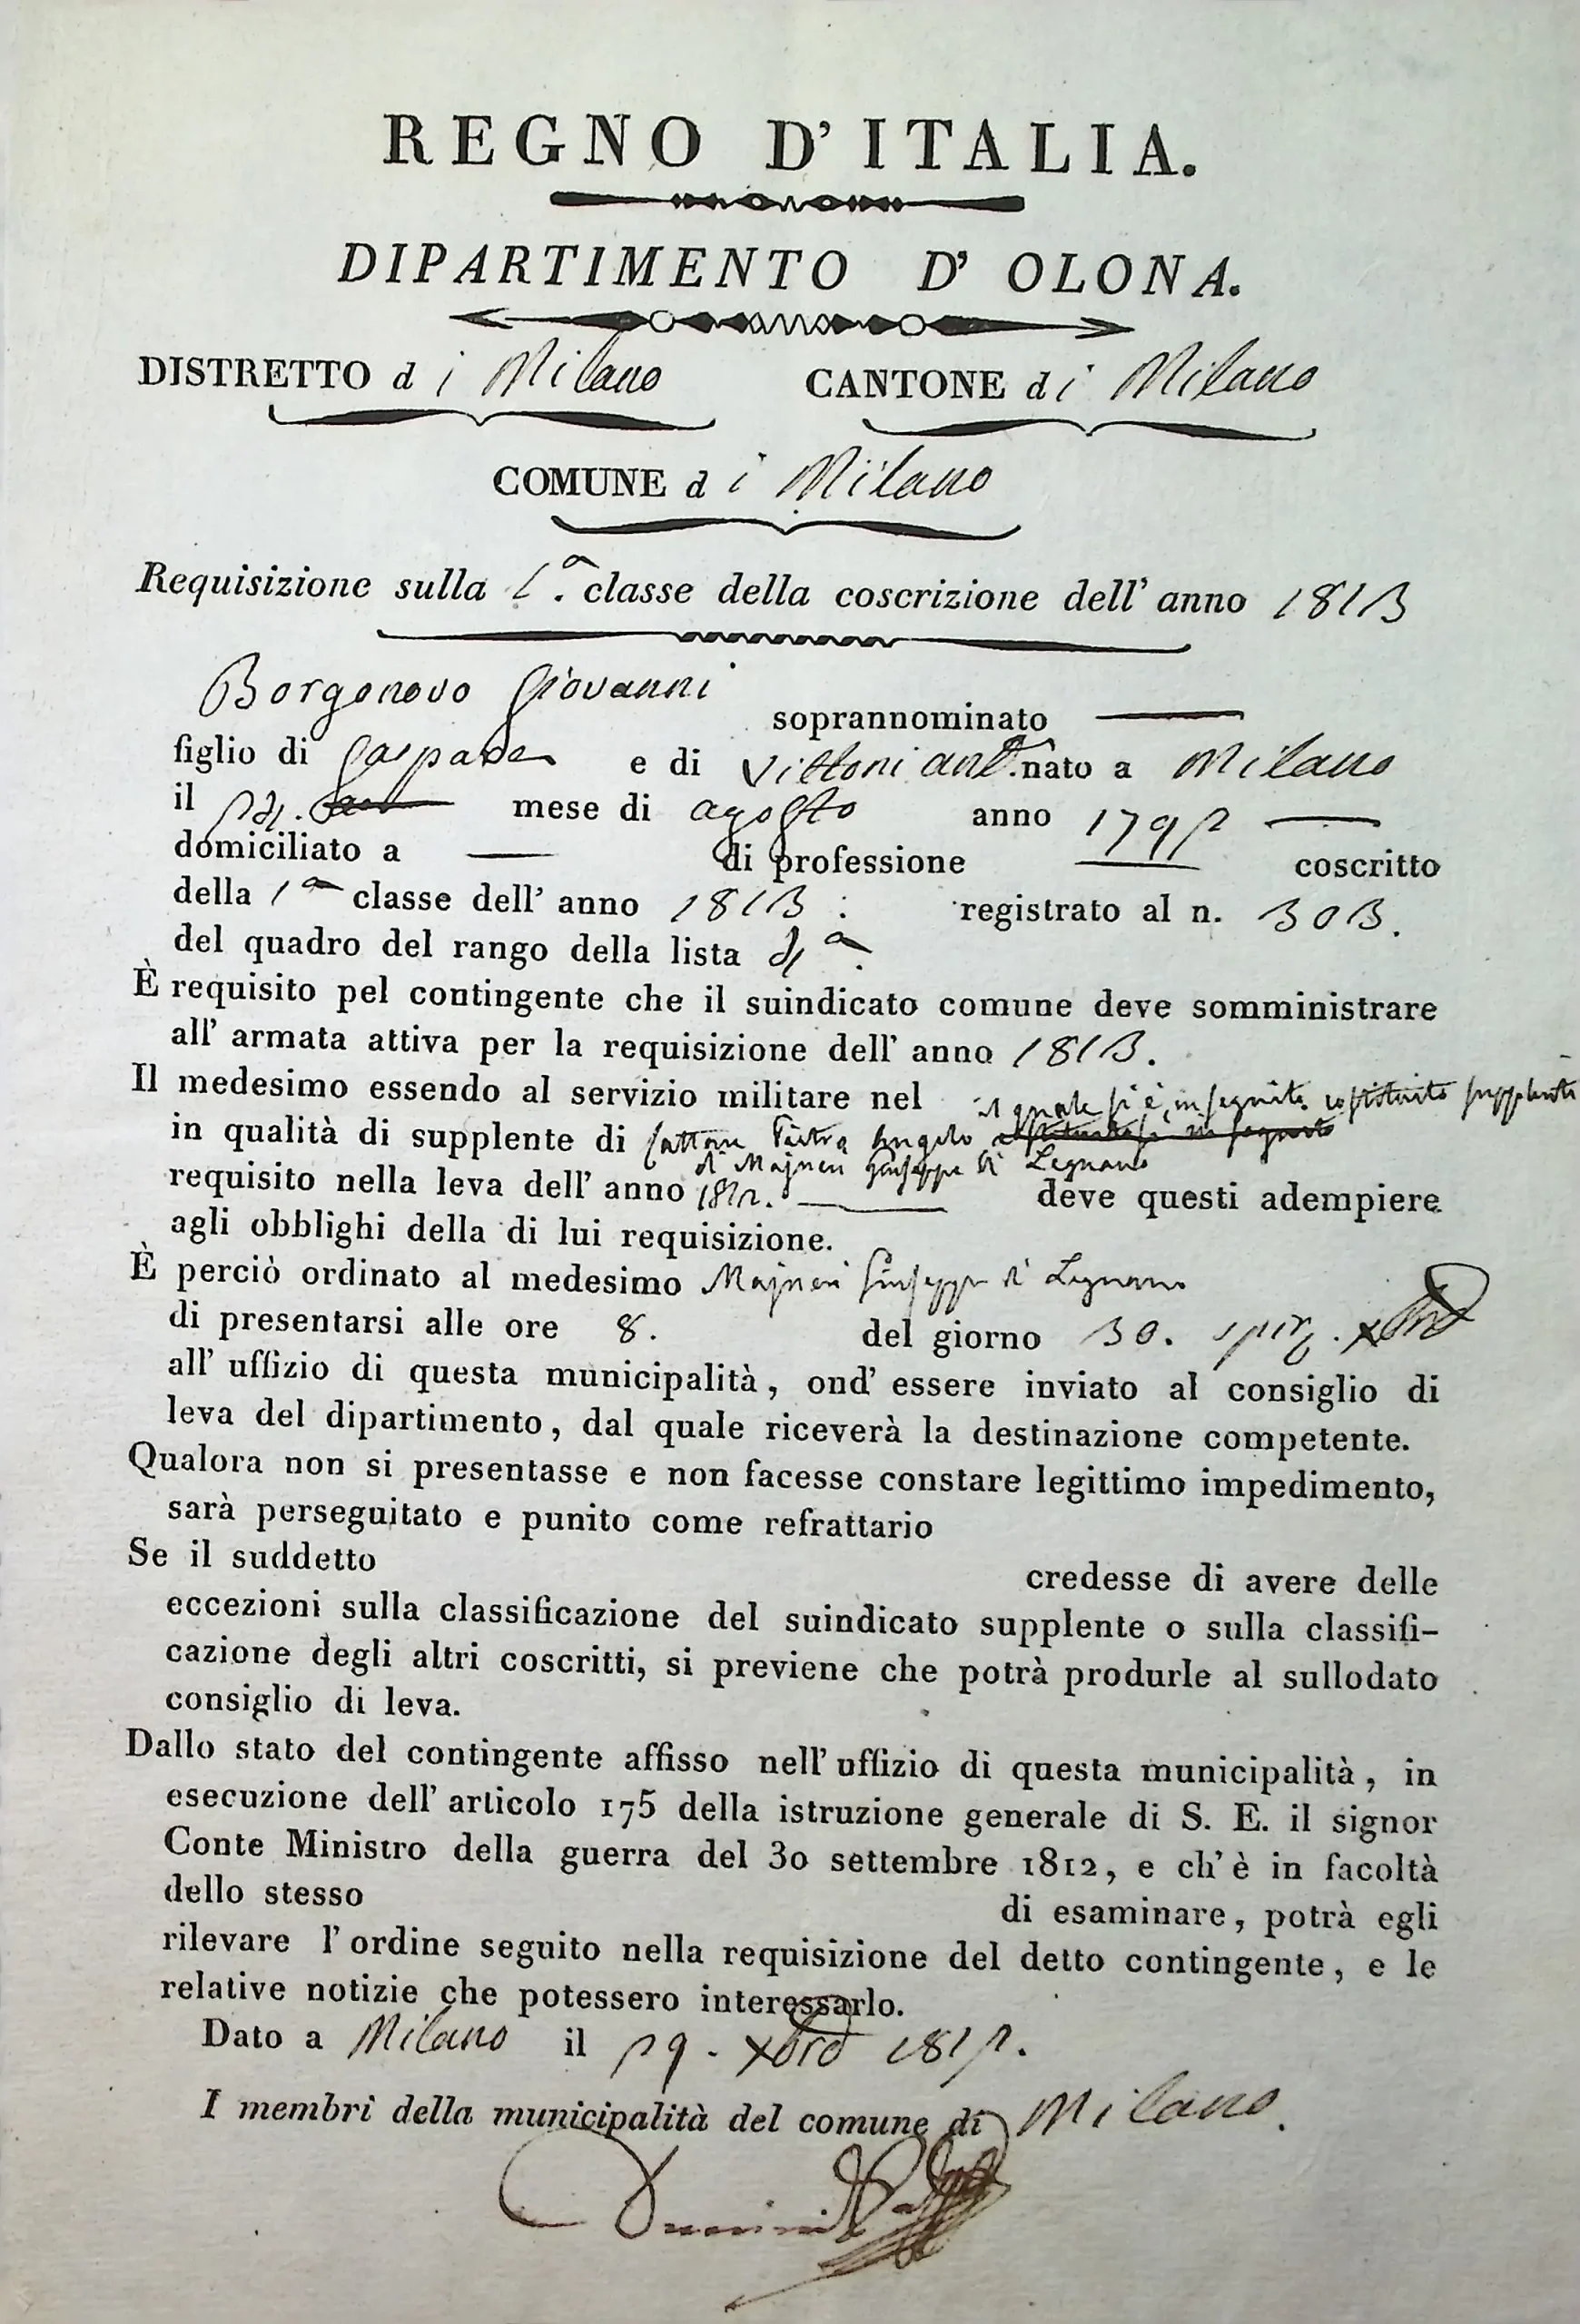 REGNO D'ITALIA.
DIPARTIMENTO D' OLONA.
DISTRETTO di Milano CANTONE di Milano
COMUNE di Milano
Requisizione sulla 1.a classe della coscrizione dell' anno 1813
Borgonovo Giovanni soprannominato —
figlio di Gaspare e di Vittoni Ant. nato a Milano
il 24. mese di agosto anno 1792 —
domiciliato a — di professione — coscritto
della 1a classe dell' anno 1813. registrato al n. 303.
del quadro del rango della lista 4a.
È requisito pel contingente che il suindicato comune deve somministrare
all' armata attiva per la requisizione dell' anno 1813.
Il medesimo essendo al servizio militare nel il quale si è in seguito costituito supplente
in qualità di supplente di Pietro Angelo
di Majneri Giuseppe di Legnano
requisito nella leva dell' anno 1812. — deve questi adempiere
agli obblighi della di lui requisizione.
È perciò ordinato al medesimo Majneri Giuseppe di Legnano
di presentarsi alle ore 8. del giorno 30. xbre
all' uffizio di questa municipalità, ond' essere inviato al consiglio di
leva del dipartimento, dal quale riceverà la destinazione competente.
Qualora non si presentasse e non facesse constare legittimo impedimento,
sarà perseguitato e punito come refrattario
Se il suddetto credesse di avere delle
eccezioni sulla classificazione del suindicato supplente o sulla classifi-
cazione degli altri coscritti, si previene che potrà produrle al sullodato
consiglio di leva.
Dallo stato del contingente affisso nell' uffizio di questa municipalità, in
esecuzione dell' articolo 175 della istruzione generale di S. E. il signor
Conte Ministro della guerra del 30 settembre 1812, e ch' è in facoltà
dello stesso di esaminare, potrà egli
rilevare l' ordine seguito nella requisizione del detto contingente, e le
relative notizie che potessero interessarlo.
Dato a Milano il 29. xbre 1812.
I membri della municipalità del comune di Milano.